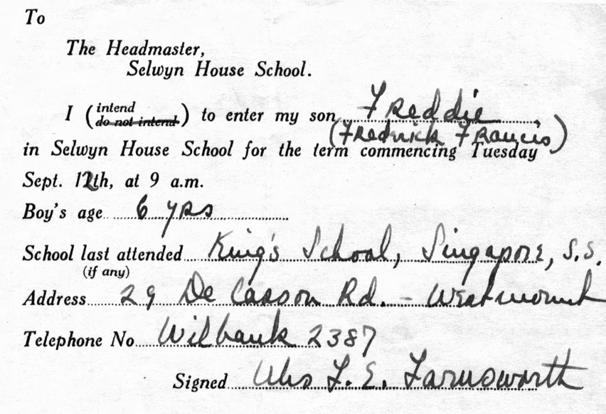 To
The Headmaster,
Selwyn House School.
I (intend
do not intend) to enter my son Freddie
(Fredrick Francis)
in Selwyn House School for the term commencing Tuesday
Sept. 12th, at 9 a.m.
Boy's age 6 yrs
School last attended King's School, Singapore, S.S.
(if any)
Address 29 De Casson Rd. - Westmount
Telephone No Wilbank 2387
Signed Mrs L. E. Farnsworth